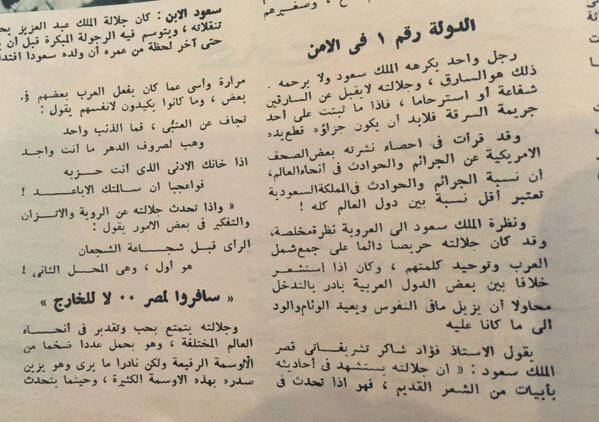 وصغيرهم
الدولة رقم ١ فى الامن
رجل واحد يكرهه الملك سعود ولا يرحمه .
ذلك هو السارق ، وجلالته لايقبل عن السارقين
شفاعة أو استرحاما ، فاذا ما ثبتت على أحد
جريمة السرقة فلابد أن يكون جزاؤه قطع يده
وقد قرأت فى احصاء نشرته بعض الصحف
الامريكية عن الجرائم والحوادث فى أنحاء العالم،
أن نسبة الجرائم والحوادث فى المملكة السعودية
تعتبر أقل نسبة بين دول العالم كله !
ونظرة الملك سعود الى العروبة نظرة مخلصة،
وقد كان جلالته حريصا دائما على جمع شمل
العرب وتوحيد كلمتهم ، وكان اذا استشعر
خلافا بين بعض الدول العربية بادر بالتدخل
محاولا أن يزيل مافى النفوس ويعيد الوئام والود
الى ما كانا عليه
يقول الاستاذ فؤاد شاكر تشريفاتى قصر
الملك سعود : « ان جلالته يستشهد فى أحاديثه
بأبيات من الشعر القديم ، فهو اذا تحدث فى
سعود الابن : كان جلالة الملك عبد العزيز
تنقلاته ، ويتوسم فيه الرجولة المبكرة قبل أن
حتى آخر لحظة من عمره أن ولده سعودا
مرارة وأسى عما كان يفعل العرب بعضهم فى
بعض ، وما كانوا يكيدون لانفسهم يقول :
تجاف عن العتبى ، فما الذنب واحد
وهب لصروف الدهر ما أنت واجد
اذا خانك الادنى الذى أنت حزبه
فواعجبا ان سالمتك الاباعد !
« واذا تحدث جلالته عن الروية والاتزان
والتفكير فى بعض الامور يقول :
الرأى قبل شجاعة الشجعان
هو أول ، وهى المحل الثانى !
« سافروا لمصر ٠٠ لا للخارج »
وجلالته يتمتع بحب وتقدير فى أنحاء
العالم المختلفة ، وهو يحمل عددا ضخما من
الأوسمة الرفيعة ولكن نادرا ما يرى وهو يزين
صدره بهذه الاوسمة الكثيرة ، وحينما يتحدث